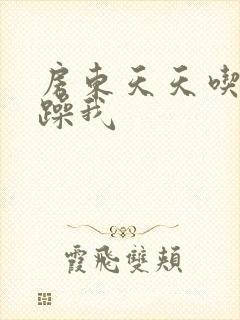 房東天天喫
躁我
霞飛雙頰